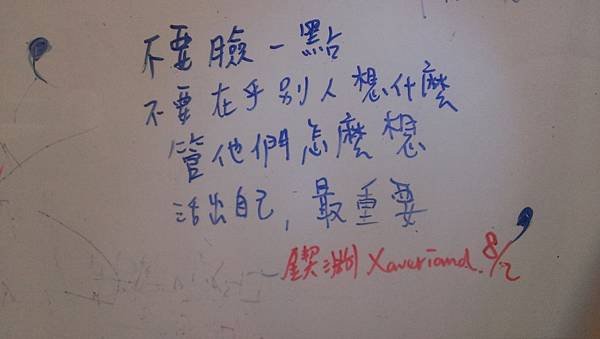 不要臉一點
不要在乎別人想什麼
管他們怎麼想
活出自己，最重要
Xaveriamd. 8/2